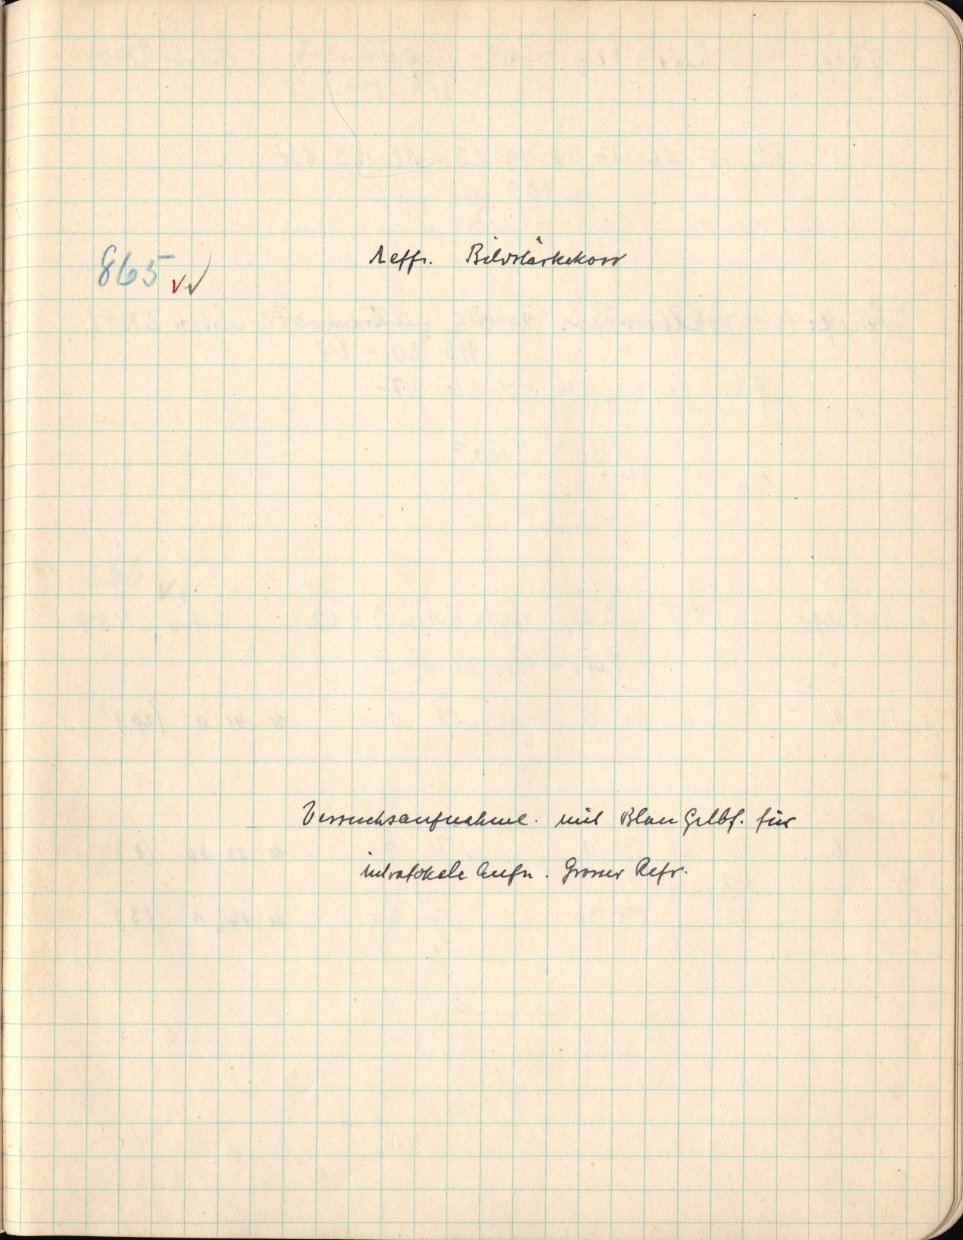 865 Bildstärkekorr
Versuchsaufnahme. mit Blau Gelbf. für
intrafokale Aufn. Grosser Refr.